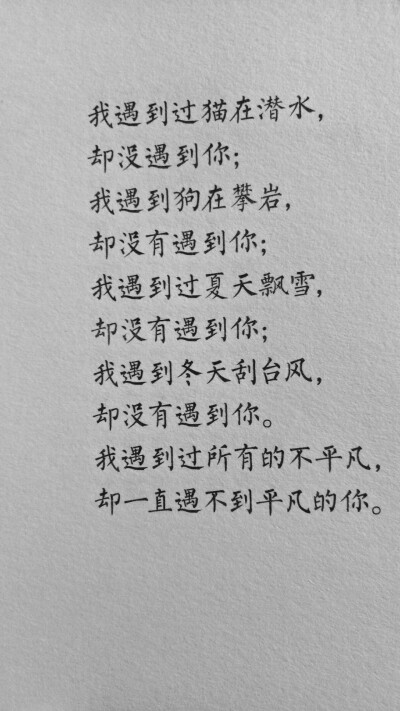 我遇到过猫在潜水，
却没遇到你；
我遇到狗在攀岩，
却没有遇到你；
我遇到过夏天飘雪，
却没有遇到你；
我遇到冬天刮台风，
却没有遇到你。
我遇到过所有的不平凡，
却一直遇不到平凡的你。